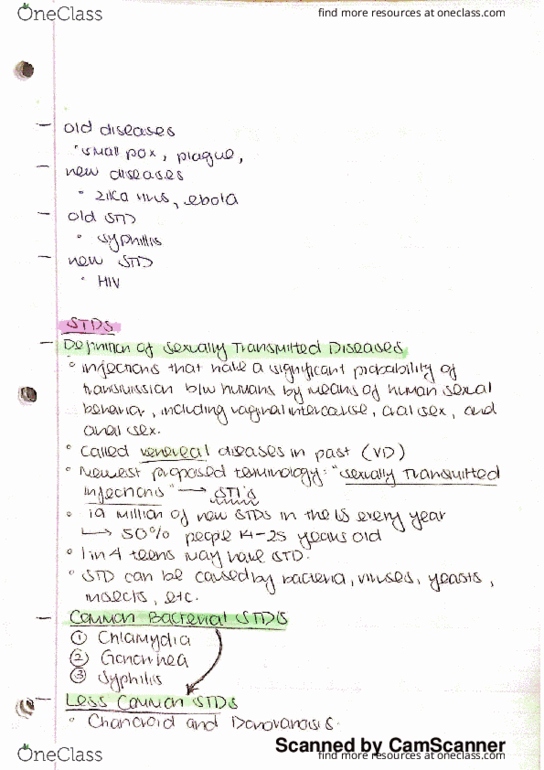 OneClass
find more resources at oneclass.com
- old diseases
• small pox, plague,
- new diseases
• zika virus, ebola
- old STD
• syphillis
- new STD
• HIV
STDS
- Definition of Sexually Transmitted Diseases
• infections that have a significant probability of
transmission b/w humans by means of human sexual
behavior, including vaginal intercourse, oral sex, and
anal sex.
• Called venereal diseases in past (VD)
• Newest proposed terminology: "sexually Transmitted
Infections" → STI's
• 19 million of new STDs in the US every year
↳ 50% people 14-25 years old
• 1 in 4 teens may have STD.
• STD can be caused by bacteria, viruses, yeasts,
insects, etc.
- Common Bacterial STDs
① Chlamydia
② Gonorrhea
③ Syphilis
- Less Common STDs
• Chancroid and Donovanosis.
Scanned by CamScanner
OneClass
find more resources at oneclass.com